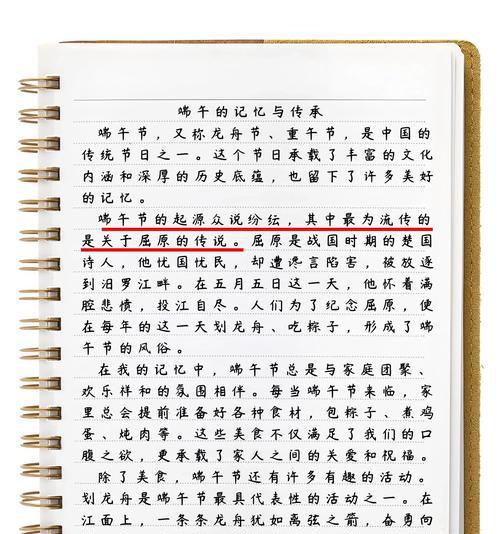 端午的记忆与传承
端午节，又称龙舟节、重午节，是中国的
传统节日之一。这个节日承载了丰富的文化
内涵和深厚的历史底蕴，也留下了许多美好
的记忆。
端午节的起源众说纷纭，其中最为流传的
是关于屈原的传说。屈原是战国时期的楚国
诗人，他忧国忧民，却遭谗言陷害，被放逐
到汨罗江畔。在五月五日这一天，他怀着满
腔悲愤，投江自尽。人们为了纪念屈原，便
在每年的这一天划龙舟、吃粽子，形成了端
午节的风俗。
在我的记忆中，端午节总是与家庭团聚、
欢乐祥和的氛围相伴。每当端午节来临，家
里总会提前准备好各种食材，包粽子、煮鸡
蛋、炖肉等。这些美食不仅满足了我们的口
腹之欲，更承载了家人之间的关爱和祝福。
除了美食，端午节还有许多有趣的活动。
划龙舟是端午节最具代表性的活动之一。在
江面上，一条条龙舟犹如离弦之箭，奋勇向